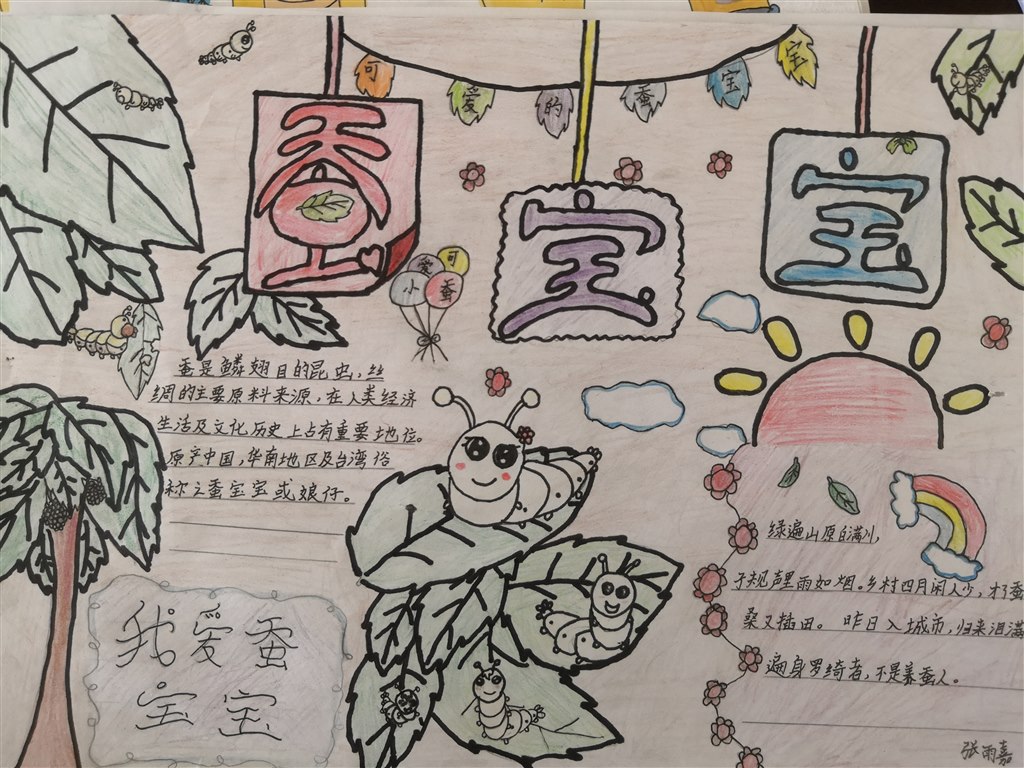 可爱的蚕宝宝
蚕宝宝
可爱小蚕
蚕是鳞翅目的昆虫，丝
绸的主要原料来源，在人类经济
生活及文化历史上占有重要地位。
原产中国，华南地区及台湾俗
称之蚕宝宝或娘仔。
我爱蚕
宝宝
绿遍山原白满川，
子规声里雨如烟。乡村四月闲人少，才了蚕
桑又插田。昨日入城市，归来泪满
遍身罗绮者，不是养蚕人。
张雨嘉